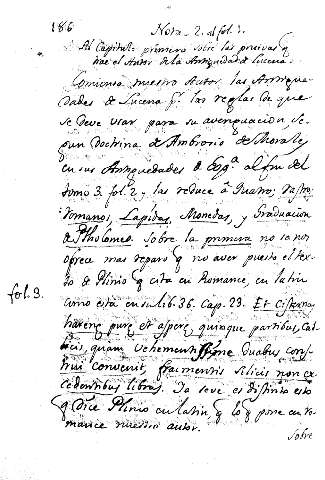 186
Nota 2. al fol. 3.
Al Capitulo primero sobre las pruevas q
trae el Autor de la Antiguedad de Lucena.
Comienza nuestro Autor las Antigue-
dades de Lucena pr. las reglas de que
se deve usar para su averiguacion, se-
gun doctrina de Ambrosio de Morales
en sus Antiguedades de Espa. al fin del
tomo 3. fol. 2. y las reduce â Quatro; Rastros
Romanos, Lapidas, Monedas, y Graduacion
de Ptholomeo. Sobre la primera no se nos
ofrece mas reparo q no aver puesto el tex-
to de Plinio q cita en Romance, en latin
como està en su lib. 36. Cap. 23. Et Cisternas
fol. 3.
harenæ puræ et asperæ, quinque partibus, Cal-
cis, quam vehementissime duabus cons-
trui convenit, fragmentis silicis non ex-
cedentibus libras. Ya se ve es distinto esto
q dice Plinio en latin, q lo q pone en ro-
mance nuestro autor.
Sobre